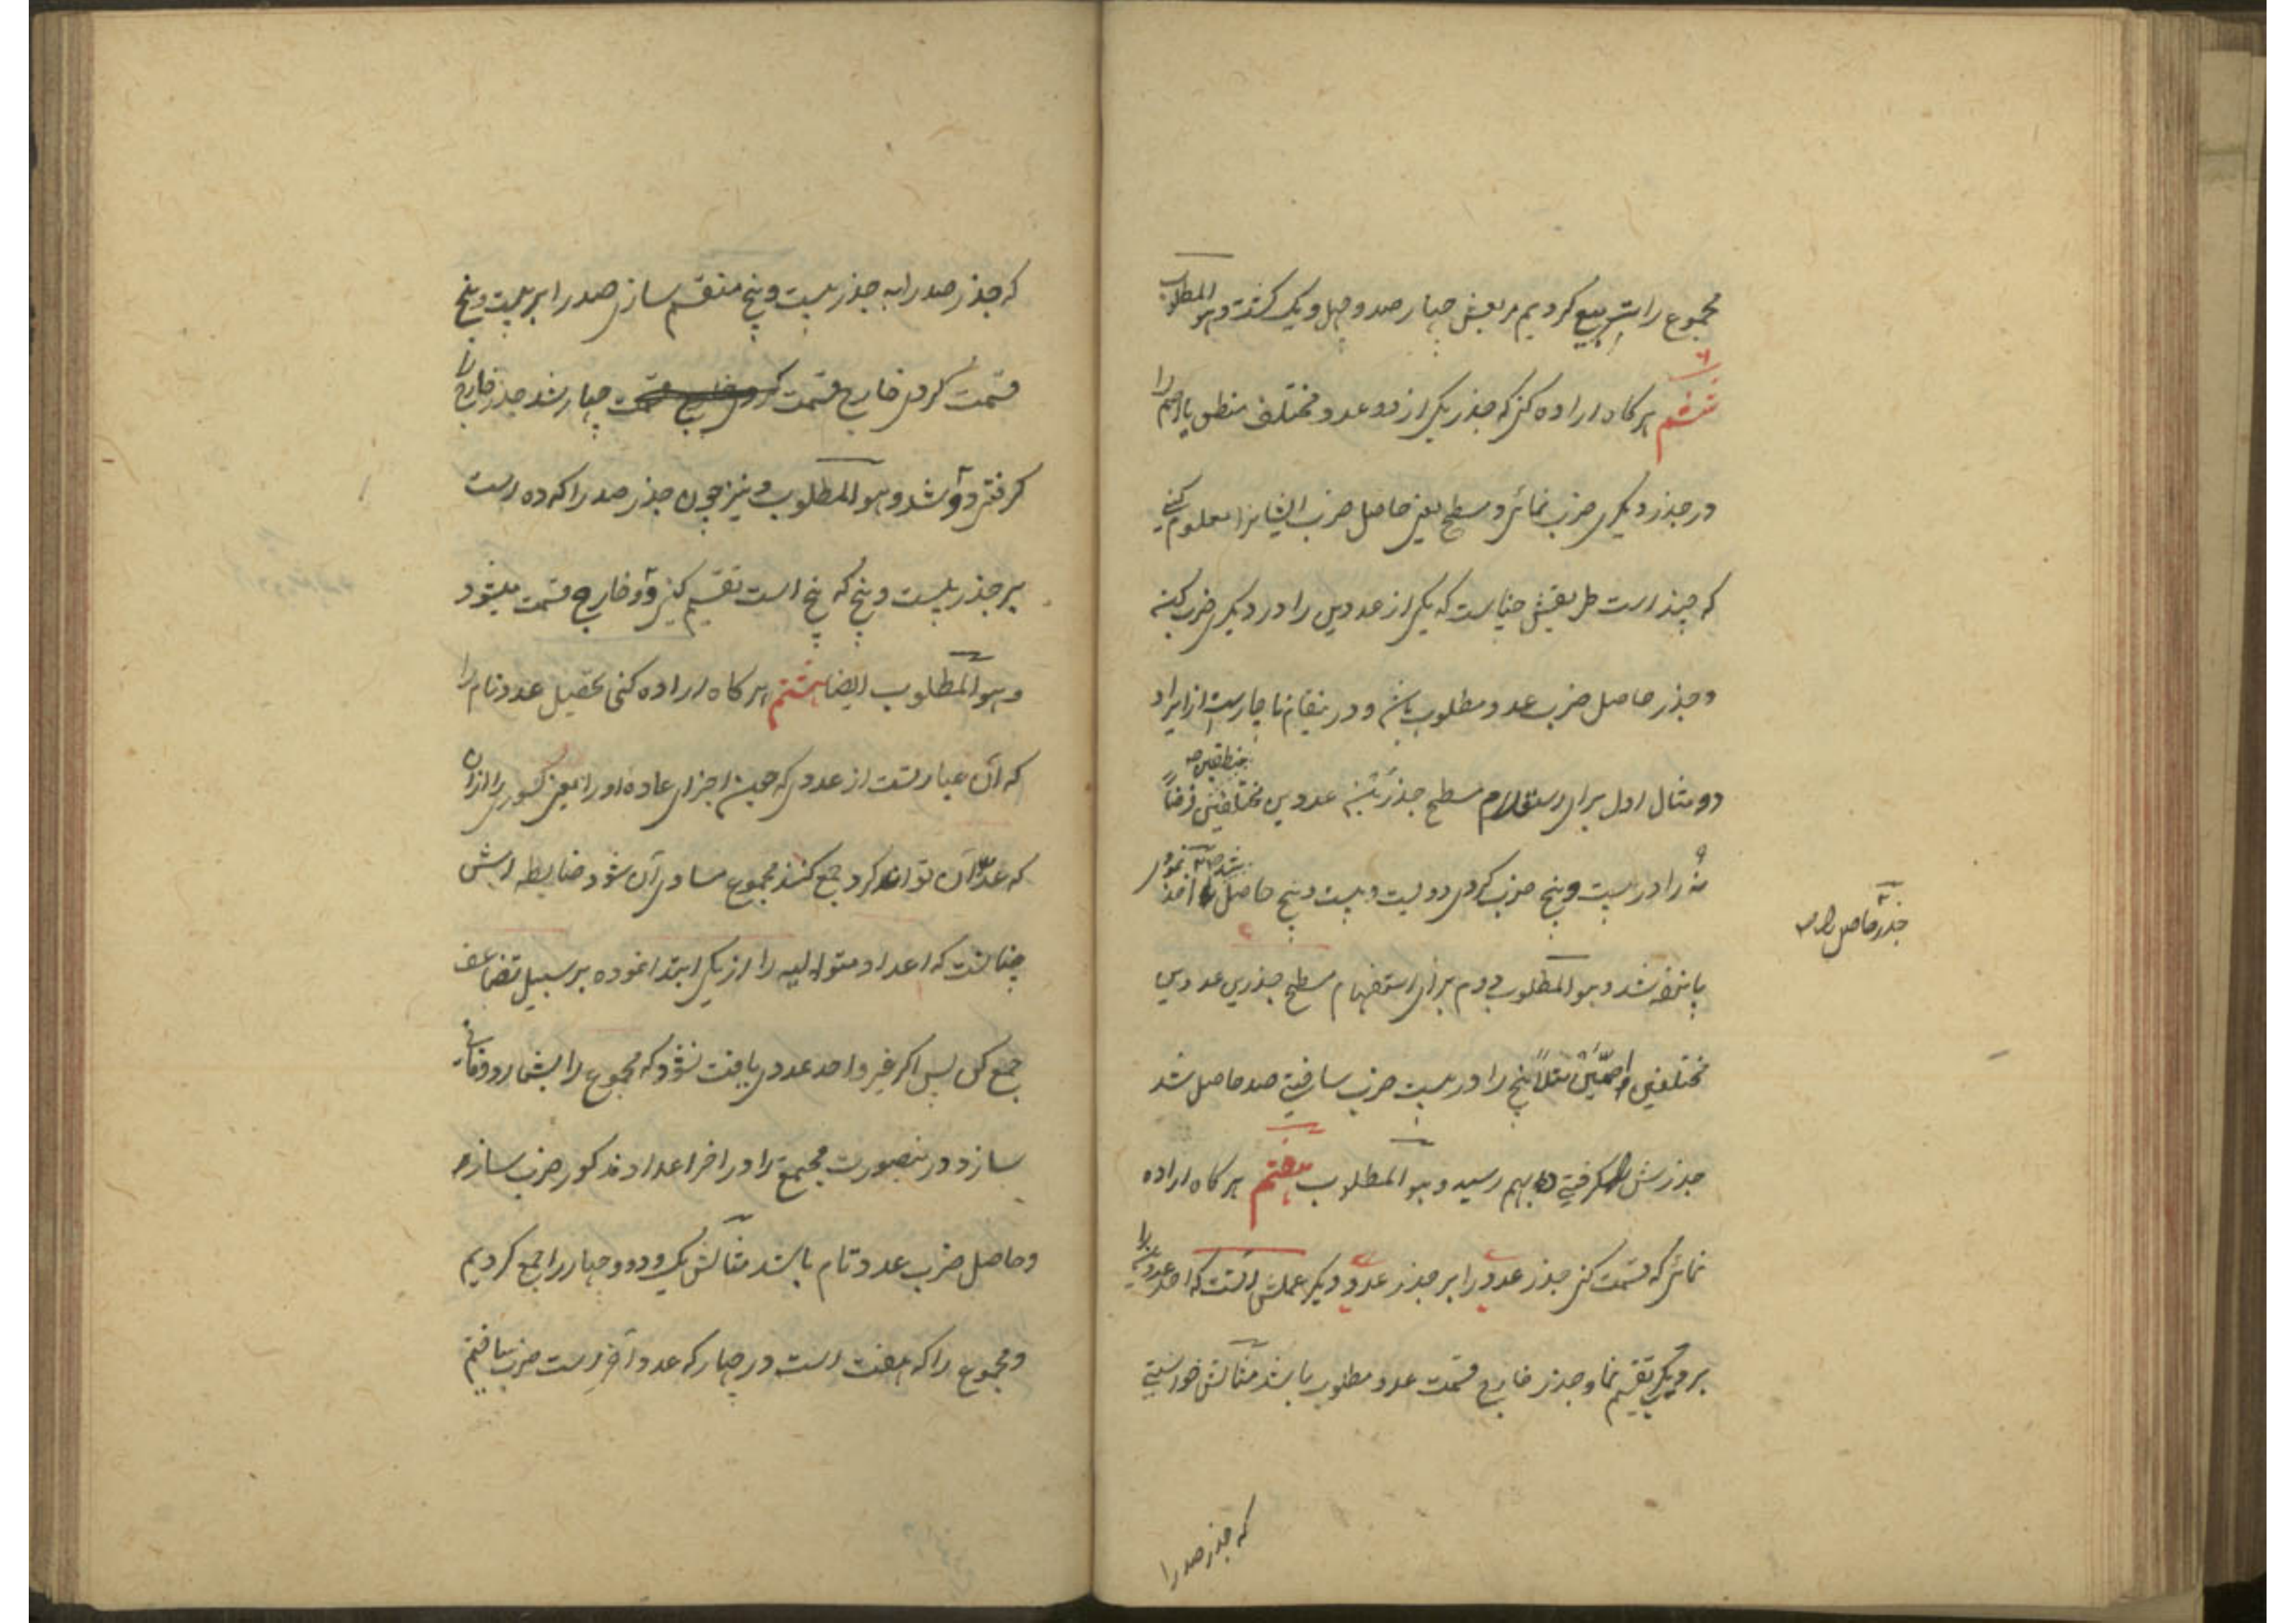 مجموع را تربیع کردیم مربعش چهار صد و چهل و یک گشت و هو المطلوب
ششم هرگاه اراده کنی که جذر یکی از دو عدد مختلف منطق یا اصم را
در جذر دیگری ضرب نمائی و مسطح یعنی حاصل ضرب ایشانرا معلوم کنی
که چند است طریقش چنانست که یکی از عددین را در دیگری ضرب کنی
و جذر حاصل ضرب عدد مطلوب باشد و در ینمقام ناچارست از ایراد
دو مثال اول برای استعلام مسطح جذر عددین مختلفین منطقین فرضاً
نه را در بیست و پنج ضرب کردی دویست و بیست و پنج حاصل شد اخذ نمودی
جذر حاصل را
پانزده شد و هو المطلوب دوم برای استفهام مسطح جذرین عددین
مختلفین اصمین مثلاً پنج را در بیست ضرب ساختی صد حاصل شد
جذرش گرفتی ده بهم رسید و هو المطلوب هفتم هرگاه اراده
نمائی که قسمت کنی جذر عددی را بر جذر عددی دیگر عملش آنست که احد عددین را
بر دیگر تقسیم نما و جذر خارج قسمت عدد مطلوب باشد مثالش خواستی
که جذر صد را
که جذر صد را به جذر بیست و پنج منقسم سازی صد را بر بیست و پنج
قسمت کردی خارج قسمت چهار شد جذر خارج را
گرفتی دو شد و هو المطلوب و نیز چون جذر صد را که ده است
بر جذر بیست و پنج که پنج است تقسیم کنی دو خارج قسمت میشود
و هو المطلوب ایضا هشتم هرگاه اراده کنی تحصیل عدد تام را
که آن عبارتست از عددی که چون اجزای عاده او را یعنی کسور را از ان
که عدّ آن تواند کرد جمع کنند مجموع مساوی آن شود ضابطه اش
چنانست که اعداد متوالیه را از یکی ابتدا نموده بر سبیل تضاعف
جمع کن پس اگر غیر واحد عددی یافت نشود که مجموع را بشمارد و فانی
سازد درینصورت مجتمع را در اخر اعداد مذکور ضرب سازی
و حاصل ضرب عدد تام باشد مثالش یک و دو و چهار را جمع کردیم
و مجموع را که هفت است در چهار که عدد آخر است ضرب ساختیم